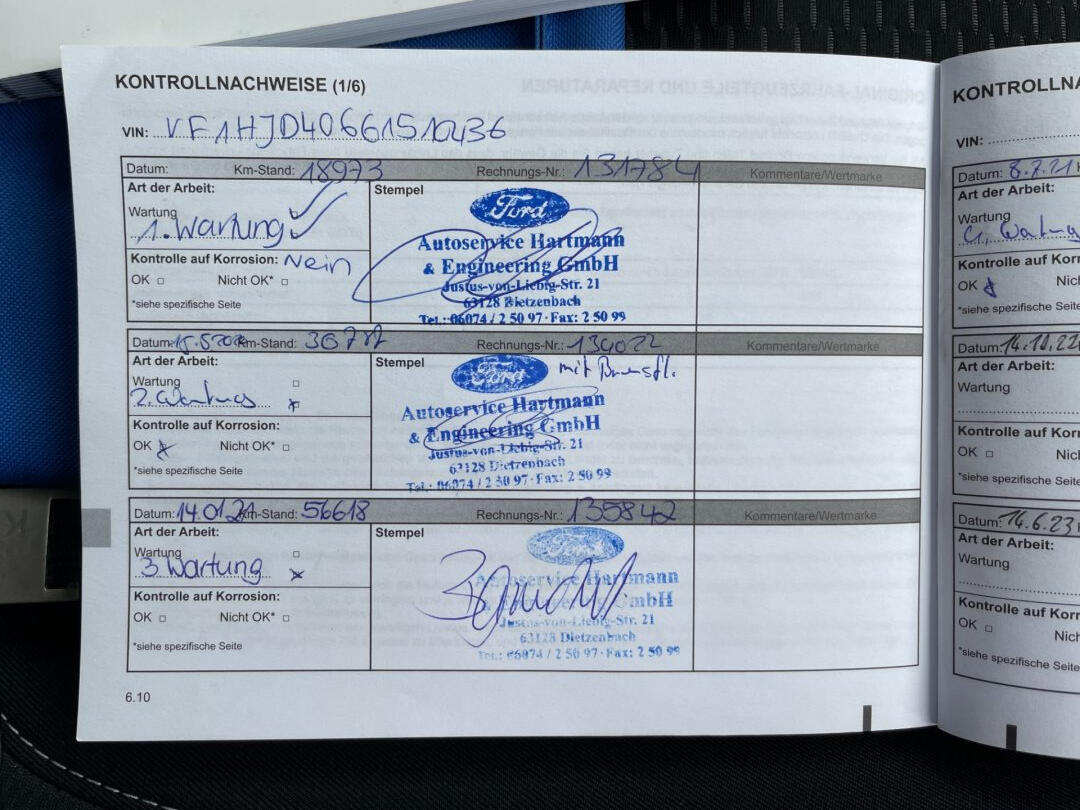 KONTROLLNACHWEISE (1/6)
VIN: VF1HJD40661510436
Datum: Km-Stand: 18973 Rechnungs-Nr.: 131784 Kommentare/Wertmarke
Art der Arbeit: Stempel
Wartung
1. Wartung
Kontrolle auf Korrosion: Nein
OK □ Nicht OK* □
*siehe spezifische Seite
Ford
Autoservice Hartmann
& Engineering GmbH
Justus-von-Liebig-Str. 21
63128 Dietzenbach
Tel.: 06074 / 2 50 97 · Fax: 2 50 99
Datum: Km-Stand: Rechnungs-Nr.: 134022 Kommentare/Wertmarke
Art der Arbeit: Stempel
Wartung □
2. Wartung
Kontrolle auf Korrosion:
OK Nicht OK* □
*siehe spezifische Seite
Ford mit
Autoservice Hartmann
& Engineering GmbH
Justus-von-Liebig-Str. 21
63128 Dietzenbach
Tel.: 06074 / 2 50 97 · Fax: 2 50 99
Datum: 14.01.21 Km-Stand: 56618 Rechnungs-Nr.: 135842 Kommentare/Wertmarke
Art der Arbeit: Stempel
Wartung □
3 Wartung
Kontrolle auf Korrosion:
OK □ Nicht OK* □
*siehe spezifische Seite
Ford
Autoservice Hartmann
& Engineering GmbH
Justus-von-Liebig-Str. 21
63128 Dietzenbach
Tel.: 06074 / 2 50 97 · Fax: 2 50 99
6.10
KONTROLLNA
VIN:
Datum: 8.7.21
Art der Arbeit:
Wartung
4. Wartung
Kontrolle auf Korr
OK Nic
*siehe spezifische Seite
Datum: 14.10.22
Art der Arbeit:
Wartung
Kontrolle auf Korr
OK □ Nich
*siehe spezifische Seite
Datum: 14.6.23
Art der Arbeit:
Wartung
Kontrolle auf Korr
OK □ Nich
*siehe spezifische Seite